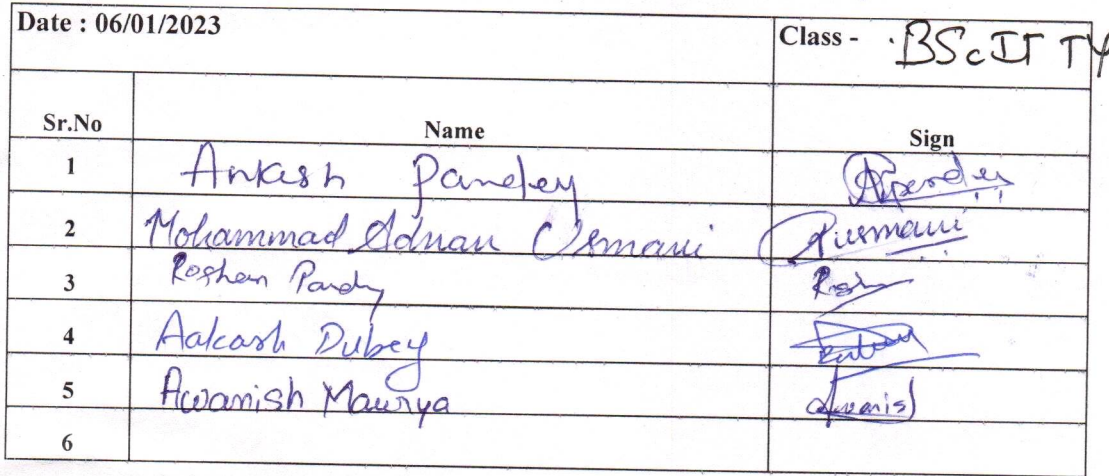 Date : 06/01/2023 Class - BScIT TY
Sr.No Name Sign
1 Ankush Pandey Apandey
2 Mohammad Adnan Usmani Ausmani
3 Roshan Pandy
4 Aakash Dubey
5 Awanish Maurya Awanish
6